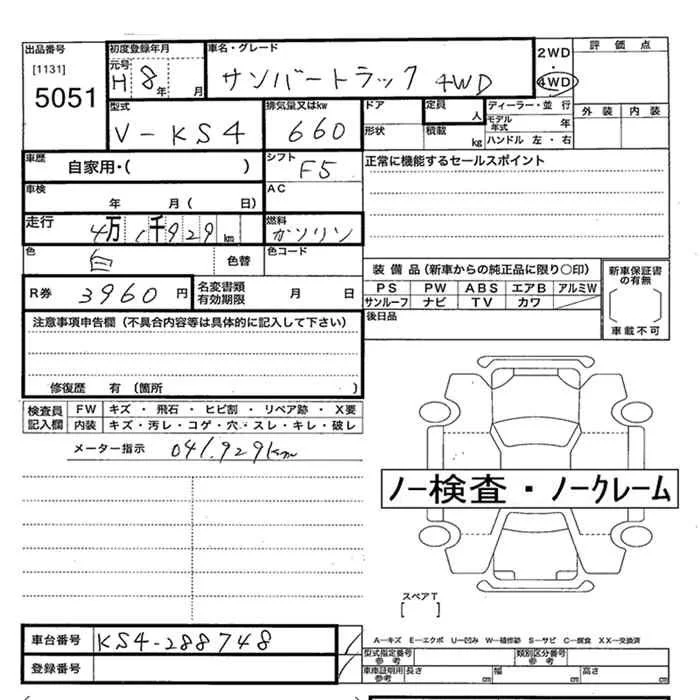 出品番号
[1131]
5051
初度登録年月
元号
H 8 年 月
車名・グレード
サンバートラック 4WD
2WD
・
4WD
評価点
外装 内装
型式
V-KS4
排気量又はkw
660
ドア
形状
定員
人
積載
kg
ディーラー・並 行
モデル年式 年
ハンドル 左・右
車歴
自家用・( )
シフト
F5
正常に機能するセールスポイント
車検
年 月( 日)
AC
走行
4万1千929km
燃料
ガソリン
色
白
色替
色コード
R券 3960円
名変書類
有効期限
月 日
装備品(新車からの純正品に限り○印)
PS PW ABS エアB アルミW
サンルーフ ナビ TV カワ
新車保証書
の有無
車載不可
後日品
注意事項申告欄(不具合内容等は具体的に記入して下さい)
修復歴 有(箇所 )
検査員
記入欄
FW キズ・飛石・ヒビ割・リペア跡・X要
内装 キズ・汚レ・コゲ・穴・スレ・キレ・破レ
メーター指示 041,929km
ノー検査・ノークレーム
スペアT
[ ]
車台番号 KS4-288748
登録番号
A―キズ E―エクボ U―凹み W―補修跡 S―サビ C―腐食 XX―交換済
型式指定番号
参考
類別区分番号
参考
車庫証明用
参考
長さ cm 幅 cm 高さ cm